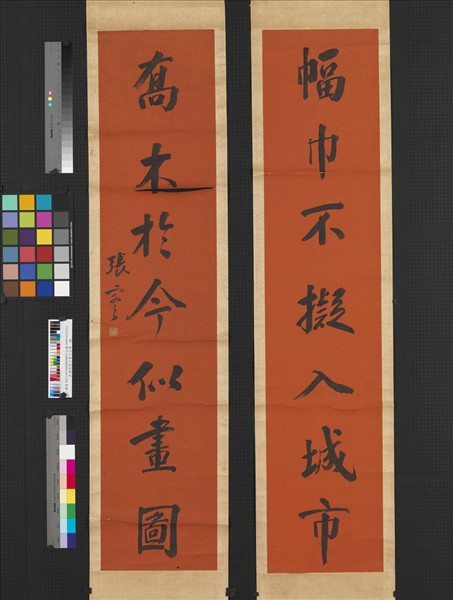 幅巾不擬入城市
喬木於今似畫圖
張謇